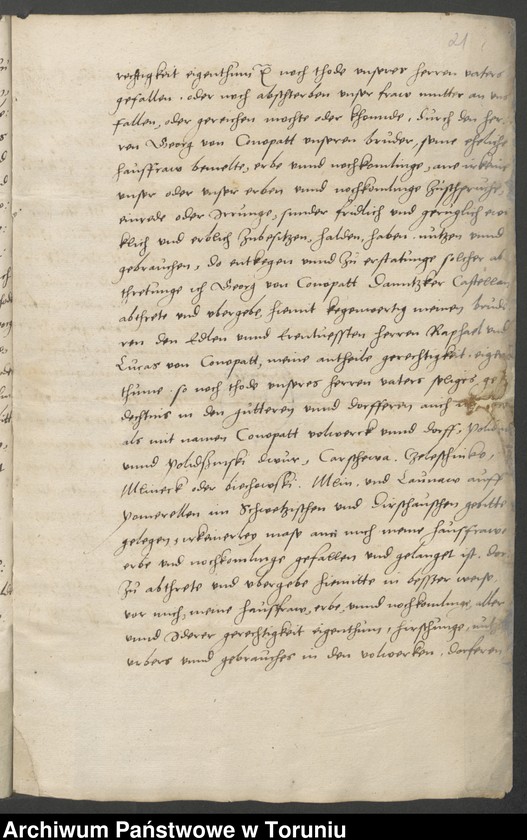 21
gerechtigkeit eigenthumb noch thode unserer herren vaters
gefallen. oder noch abschterben unser fraw mutter an uns
fallen, oder gereichen mochte oder khonnde, durch den her
ren Georg von Conopatt unseren bruder, seine eheliche
hausfraw bemelte, erbe unnd nochkomlinge, ane
unser oder unser erben unnd nochkomlinge Zuschpruche,
einrede oder Irrunge, sunder fridlich und geruglich ewi
klich und erblich Zubesitzen, halden, haben. nutzen unnd
gebrauchen, do entkegen unnd Zu erstatunge solcher ab
thretunge ich Georg von Conopatt Danntzker Castellan
abthrete und ubergebe hiemit kegenwertig meinen brude
ren den Edlen unnd Erentuessten herren Raphael und
Lucas von Conopatt, meine antheile gerechtigkeit. eigen
thume. so noch thode unseres herren vaters seliges, ge
dechtnis in den gutteren unnd dorfferen auch
als mit namen Conopatt volwerck unnd dorff,
unnd dwur, Carschewa.
Mlineck oder Miin. und Launaw auff
Pomerellen im Schwetzischen und Dirschauschen gebitte
gelegen, mose ann mich meine hausfraw
erbe und nochkomlinge gefallen und gelanget ist. dor
Zu abthrete und ubergebe hiemitte in besster weise,
vor mich, meine hausfraw, erbe, unnd nochkomlinge, aller
unnd Iderer gerechtigkeit eigenthum, hirschunge,
urbers unnd gebrauches in den volwerken. dorferen
Archiwum Państwowe w Toruniu